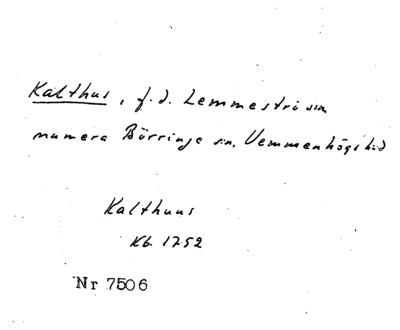 Kalthus, f.d. Lemmeströ sn
numera Börringe sn, Vemmenhögs hd
Kalthuus
Kb. 1752
Nr 7506